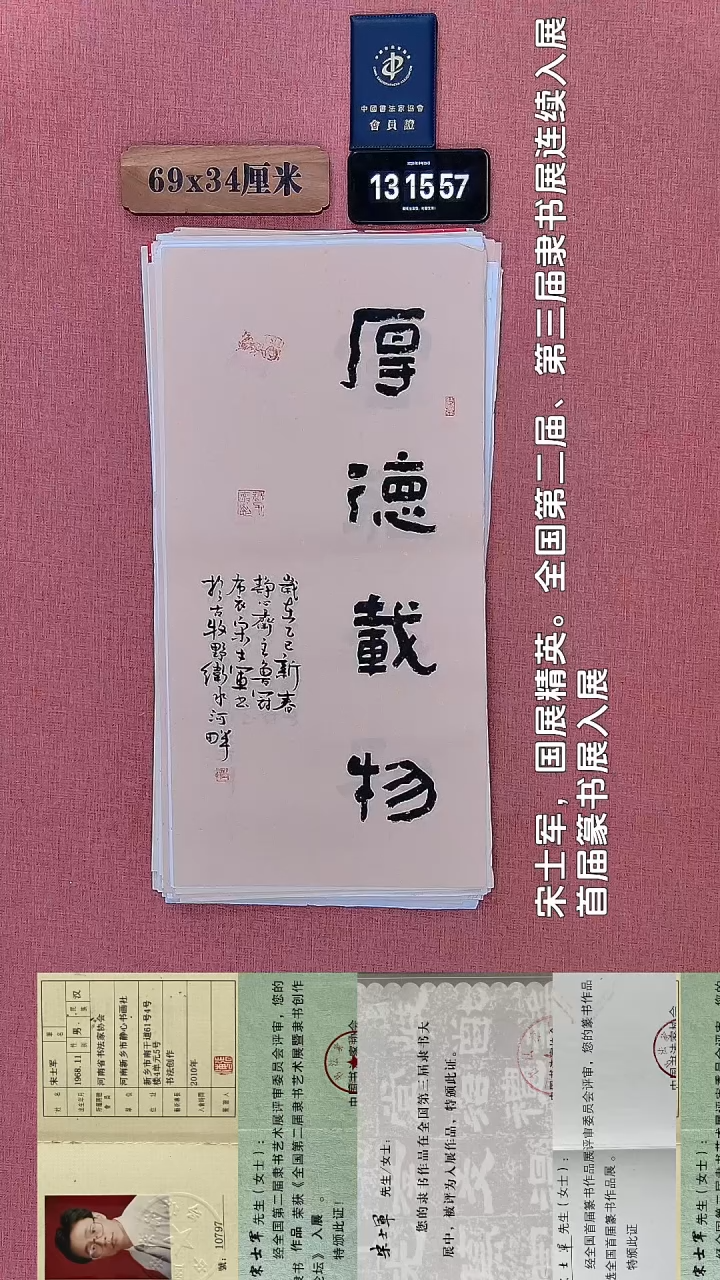 中國書法家協會
會員證
69x34厘米
13 15 57
厚德載物
歲在乙巳新春
靜心齋主魯翁
布衣宋士軍書
於古牧野衛水河畔
宋士军，国展精英。全国第二届、第三届隶书展连续入展
首届篆书展入展
姓名 宋士军
出生年月 1968.11 性别 男 民族 汉
河南省书法家协会
会员
河南新乡市静心书画社
新乡市南干道61号4号
楼4单元5号
书法创作
入会时间 2010年
號：10797
宋士军 先生（女士）：
经全国第二届隶书艺术展评审委员会评审，您的
隶书 作品 荣获《全国第二届隶书艺术展暨隶书创作
论坛》 入展 。
特颁此证！
宋士军 先生/女士：
您的隶书作品在全国第三届隶书大
展中，被评为入展作品，特颁此证。
先生（女士）：
经全国首届篆书作品展评审委员会评审，您的篆书作品
选全国首届篆书作品展。
特颁此证
宋士军 先生（女士）：